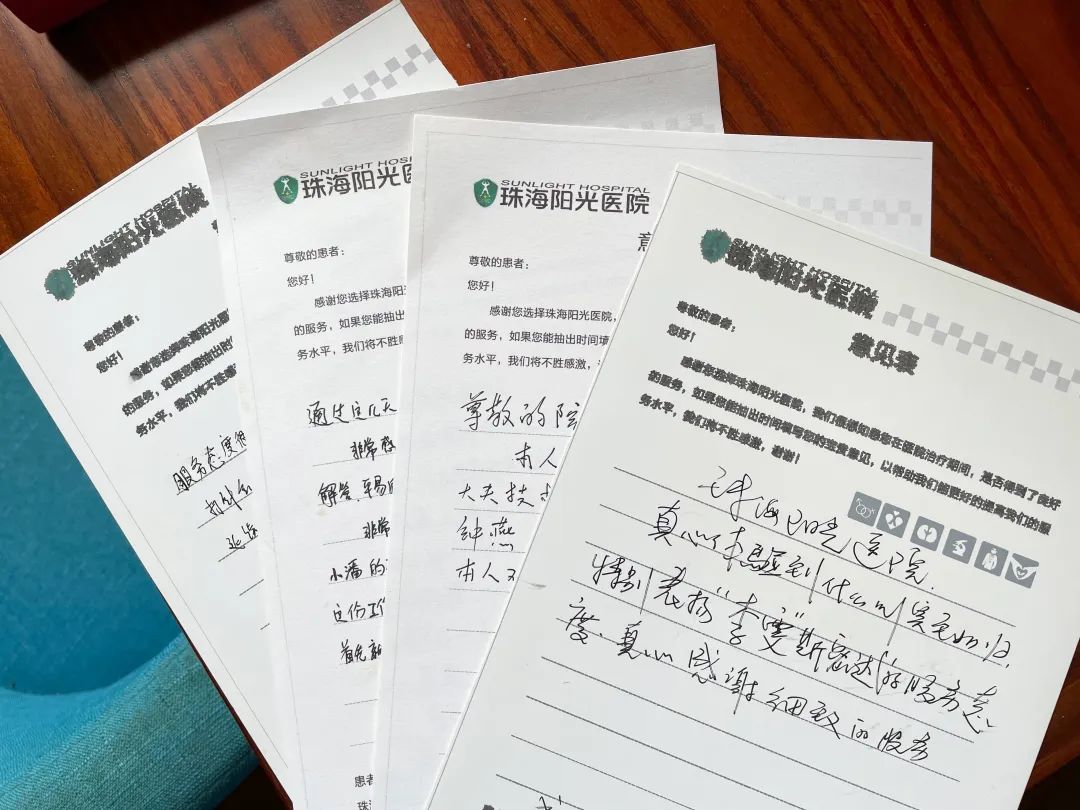 SUNLIGHT HOSPITAL
珠海阳光医院
尊敬的患者：
您好！
感谢您选择珠海阳光医
的服务，如果您能抽出时
务水平，我们将不胜感
服务态度很
SUNLIGHT HOSP
珠海阳光医
尊敬的患者：
您好！
感谢您选择珠海阳
的服务，如果您能抽出
务水平，我们将不胜
通过这几天
非常
解答.平易
非常
小潘的
这份工作
首先
患者
珠
SUNLIGHT HOSPITAL
珠海阳光医院
意
尊敬的患者：
您好！
感谢您选择珠海阳光医院，
的服务，如果您能抽出时间填
务水平，我们将不胜感激，
尊敬的院
本人
大夫技术
钟燕
本人又
SUNLIGHT HOSPITAL
珠海阳光医院
意见表
尊敬的患者：
您好！
感谢您选择珠海阳光医院，我们很想知道您在医院治疗期间，是否得到了良好
的服务，如果您能抽出时间填写您的宝贵意见，以帮助我们能更好的提高我们的服
务水平，我们将不胜感激，谢谢！
珠海阳光医院.
真心体验到什么叫宾至如归.
特别表扬"李雯"斯密达的服务态
度.真心感谢细致的服务